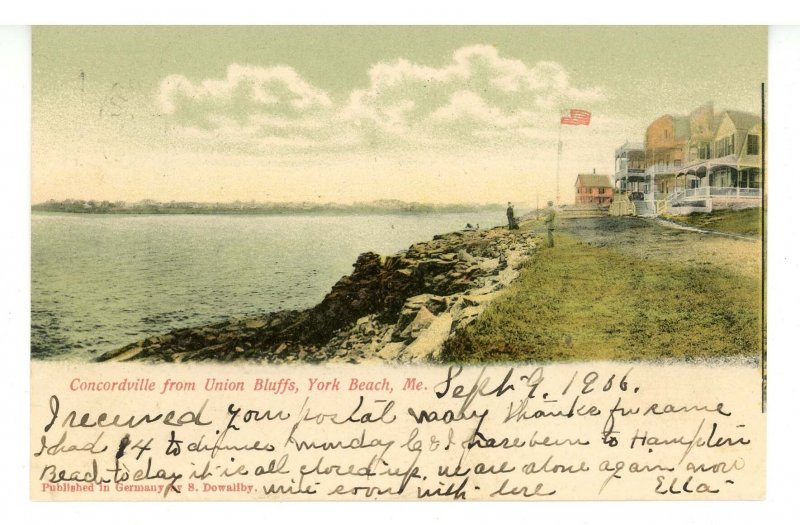 Concordville from Union Bluffs, York Beach, Me. Sept 9, 1906.
I received your postal many thanks for same
I had 14 to dinner monday & I have been to Hampton
Beach today it is all closed up, we are alone again now
Published in Germany by S. Dowallby. write soon with love Ella